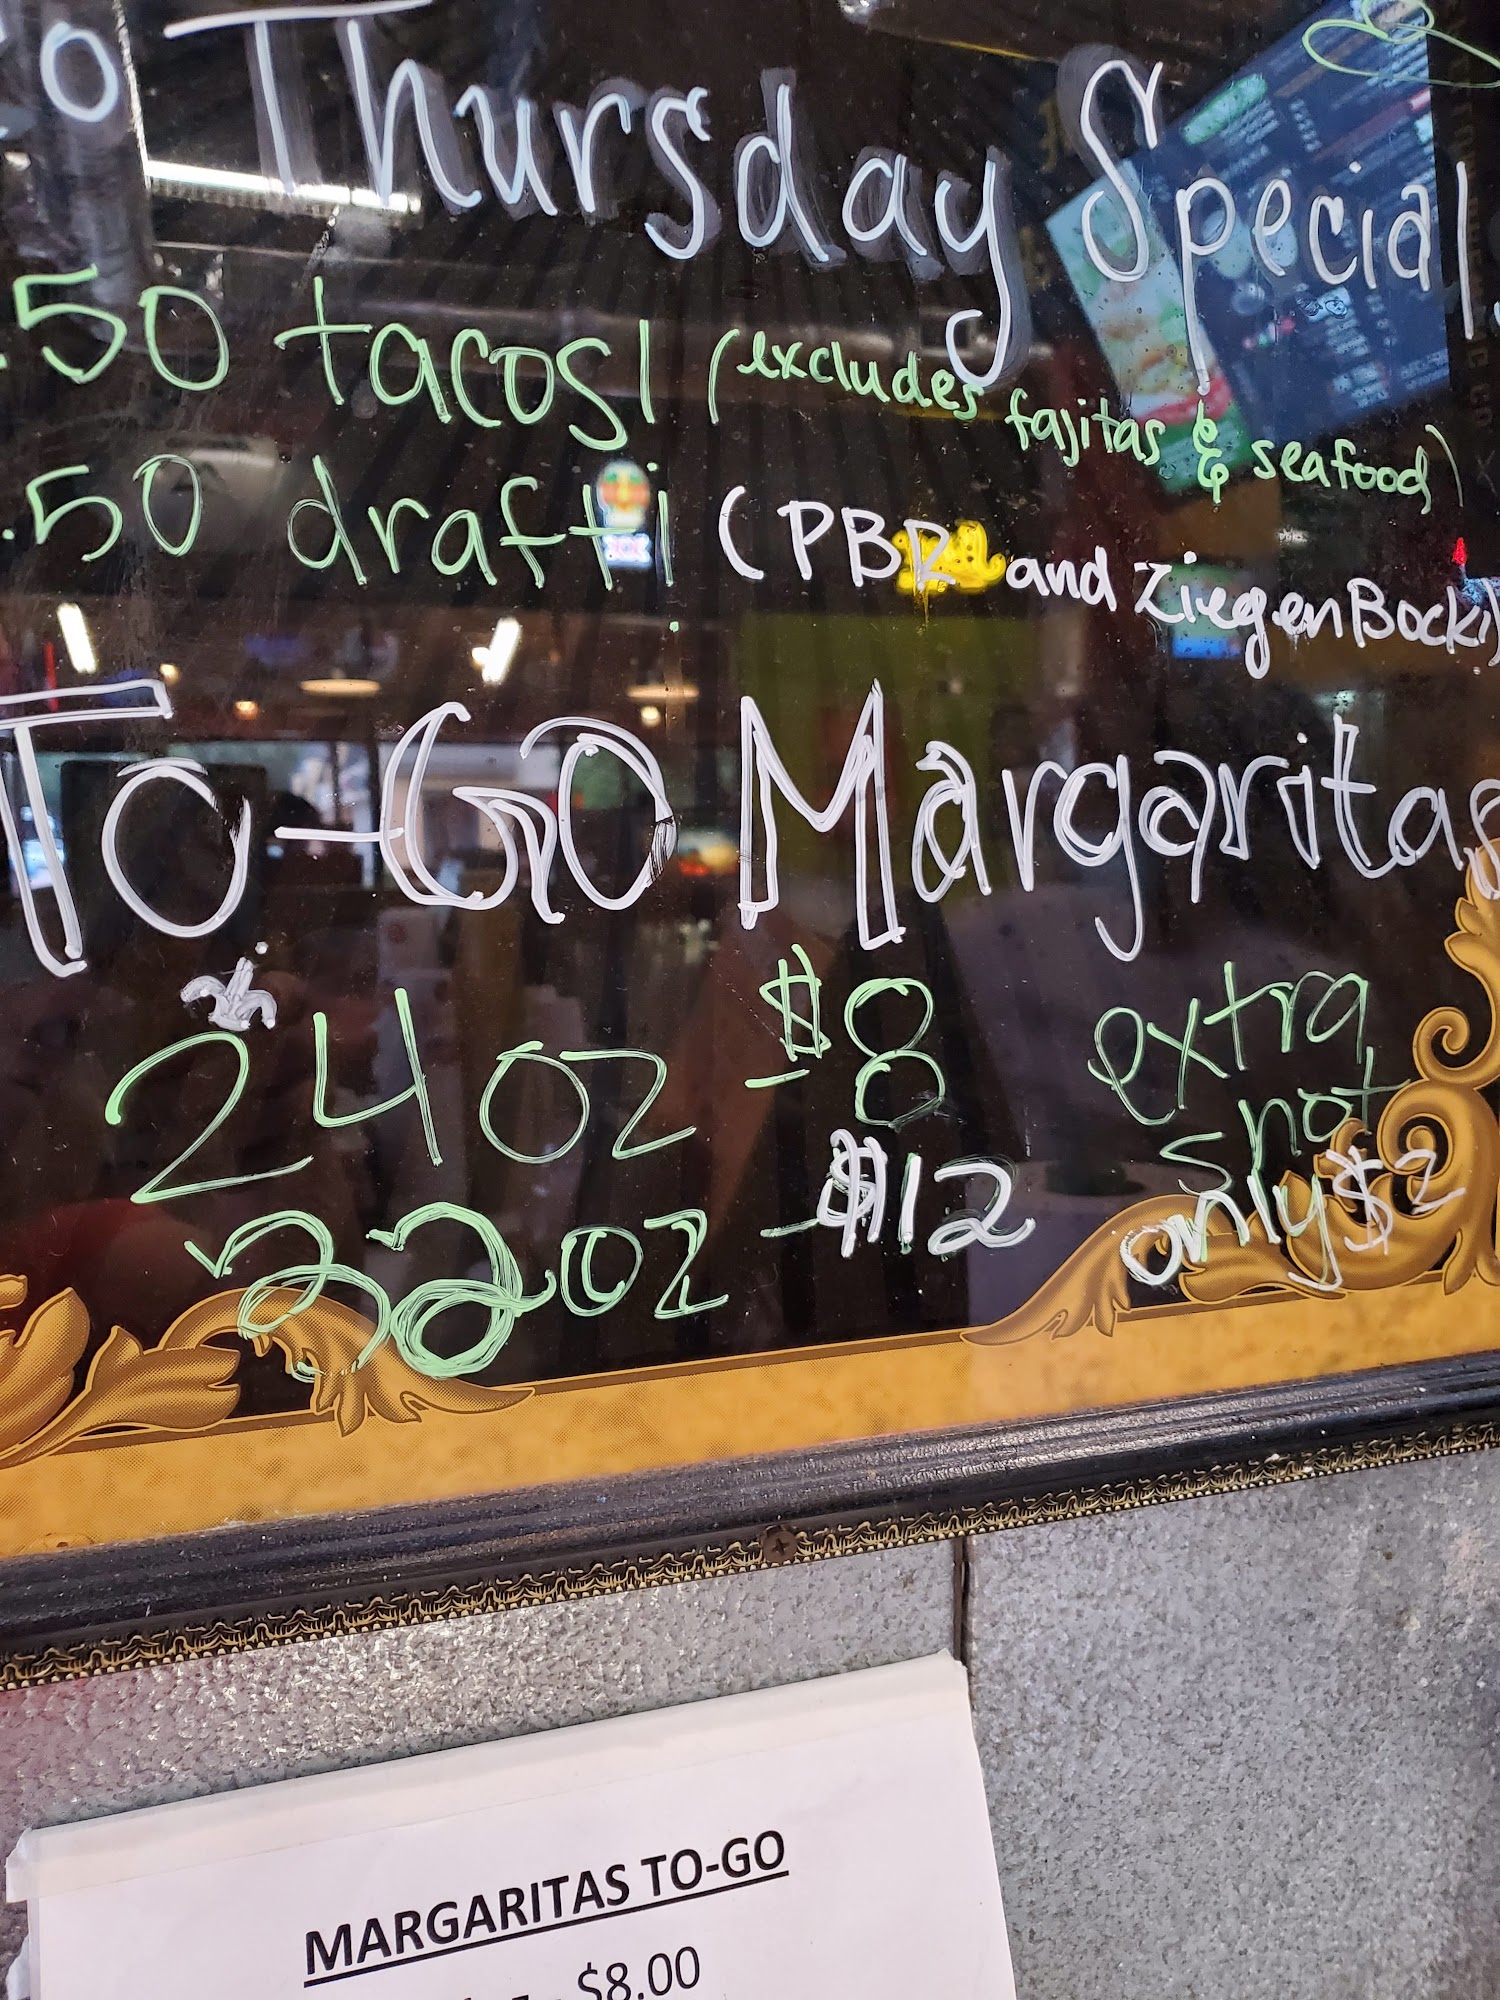 Thursday Special
.50 tacos! (excludes fajitas & seafood)
.50 draft! (PBR and ZiegenBock)
To-GO Margaritas
24 oz - $8 extra shot only $2
32 oz - $12
MARGARITAS TO-GO
- $8.00